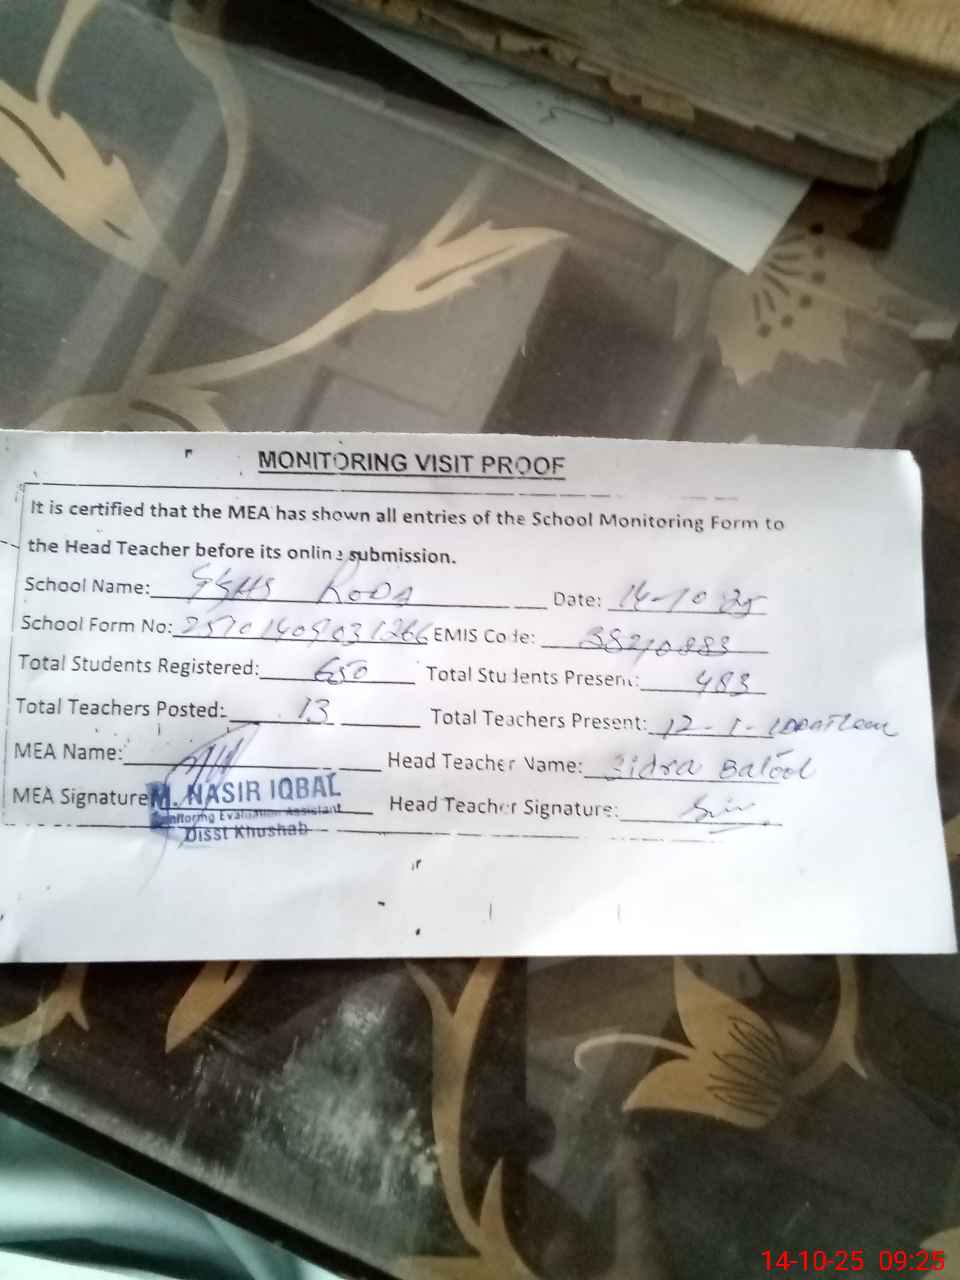 MONITORING VISIT PROOF
It is certified that the MEA has shown all entries of the School Monitoring Form to
the Head Teacher before its online submission.
School Name: GGHS RODA Date: 14-10-25
School Form No: EMIS Code:
Total Students Registered: 650 Total Students Present: 483
Total Teachers Posted: 13 Total Teachers Present: 12-1-
MEA Name: Head Teacher Name: Sidra Batool
MEA Signature M. NASIR IQBAL Head Teacher Signature:
Monitoring Evaluation Assistant
Disst Khushab
14-10-25 09:25